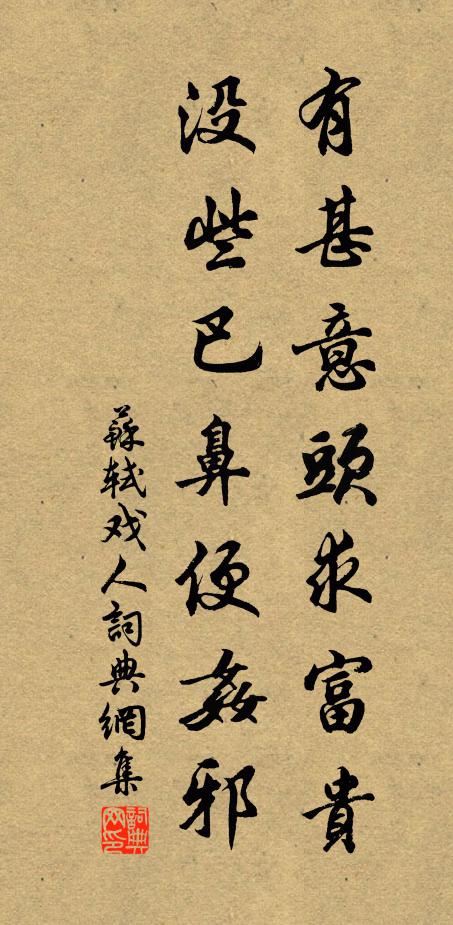 有甚意頭求富貴
没些巴鼻便姦邪
蘇軾戏人詞典網集
詞典網印